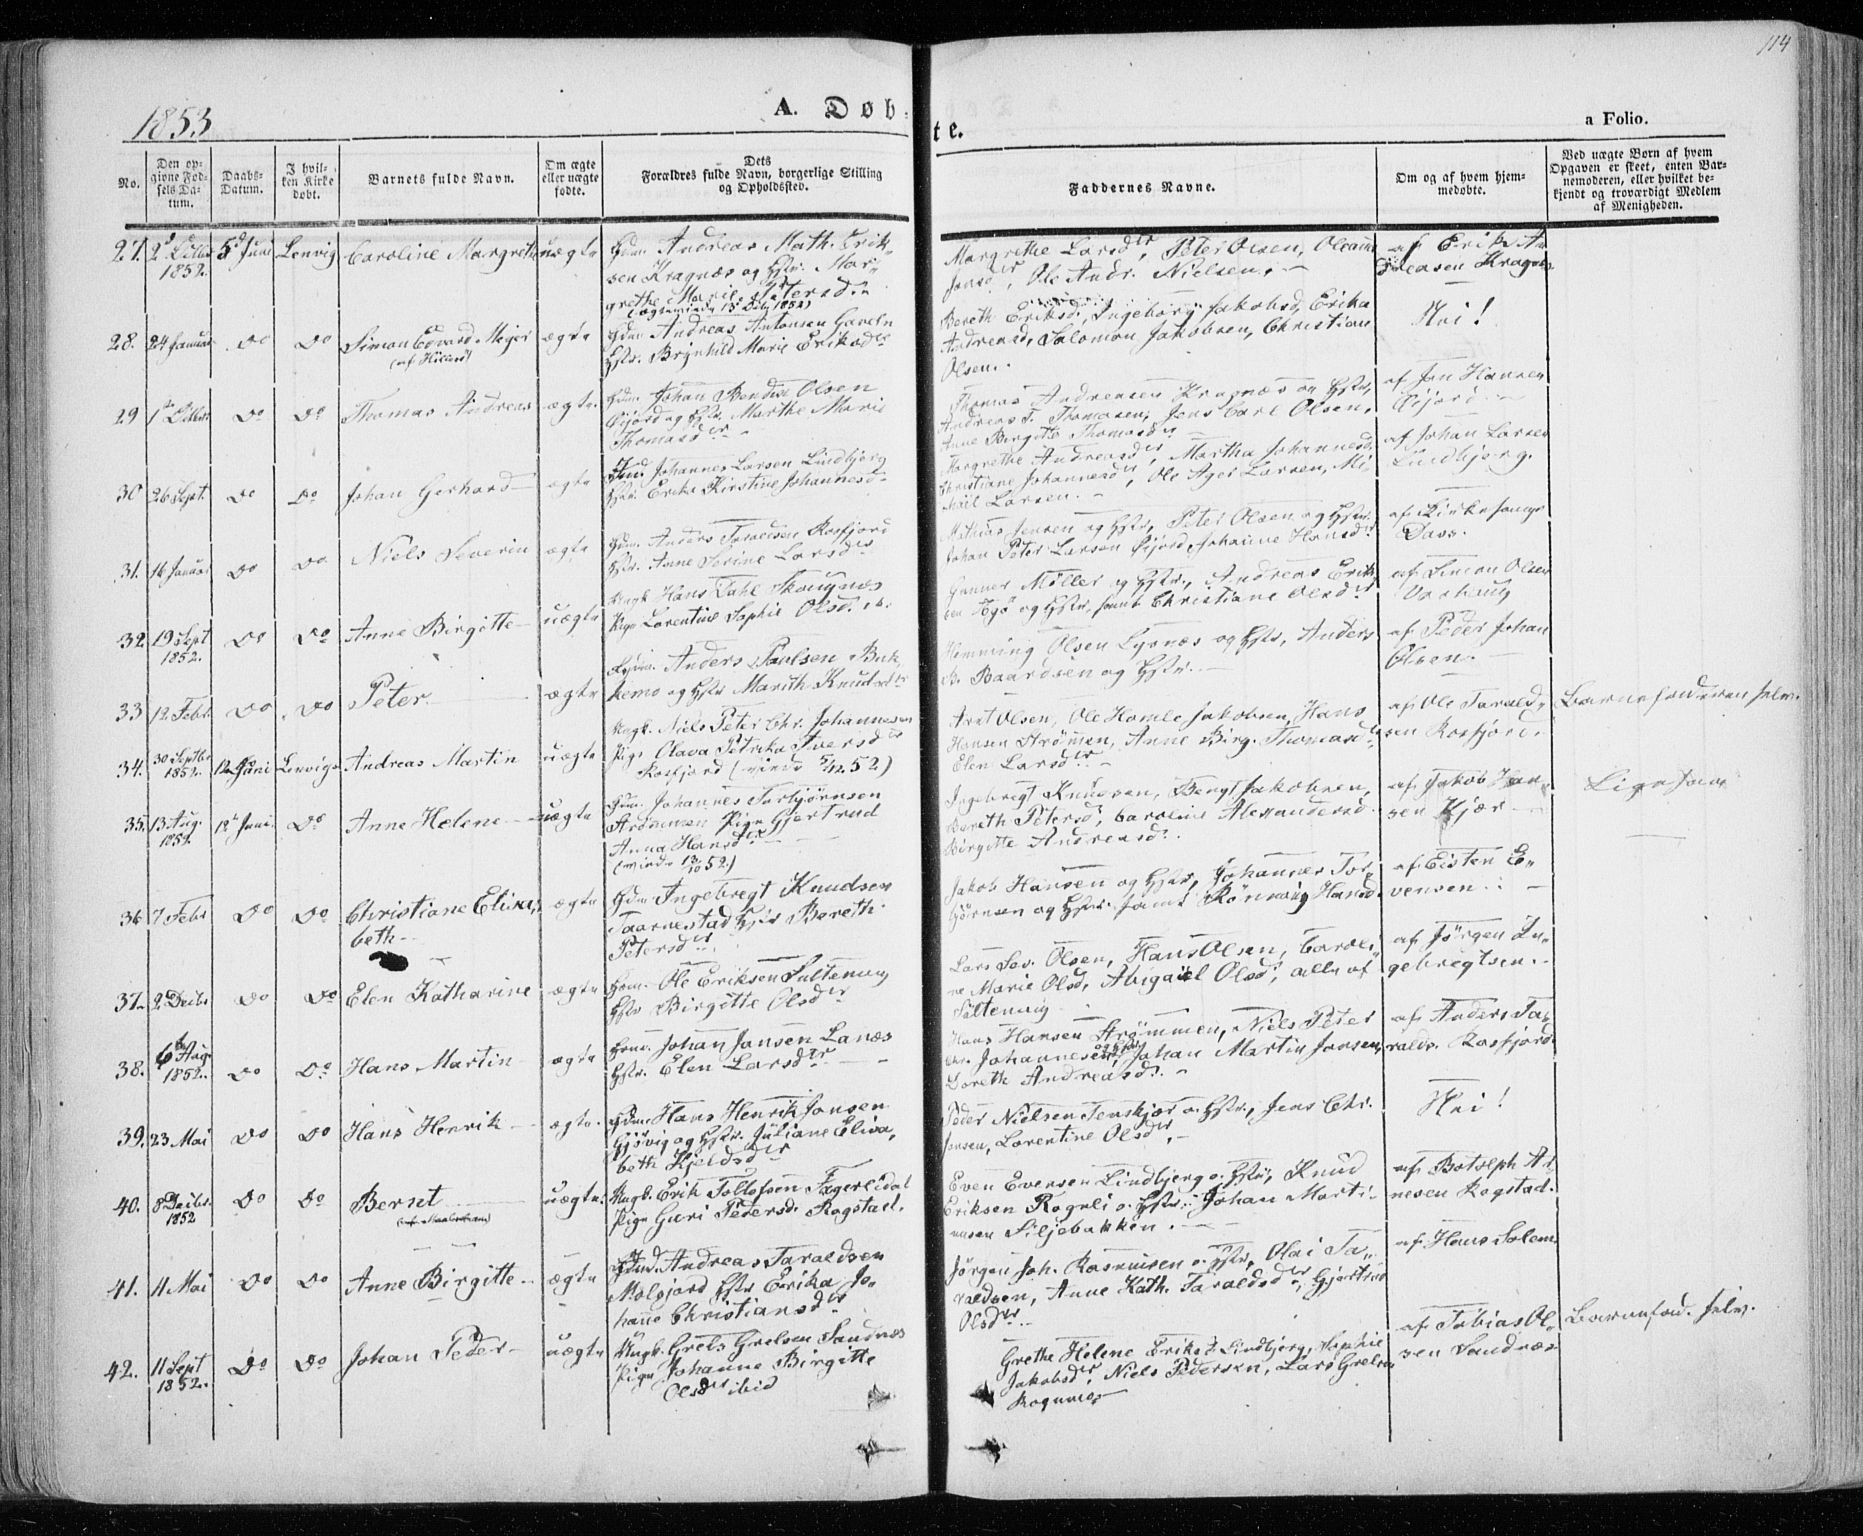 114
1853
A. Døb-
te.
a Folio.
No.
Den op-
givne Fød-
sels Da-
tum.
Daabs-
Datum.
I hvil-
ken Kirke
døbt.
Barnets fulde Navn.
Om ægte
eller uægte
fødte.
Dets
Forældres fulde Navn, borgerlige Stilling
og Opholdssted.
Faddernes Navne.
Om og af hvem hjem-
medøbte.
Ved uægte Børn af hvem
Opgaven er skeet, enten Bar-
nemoderen, eller hvilket be-
kjendt og troværdigt Medlem
af Menigheden.
27. 1852. 5 Juni Lenvig Caroline Margrethe uægte
Andreas Math. Erik-
sen Kragnæs og Hstr. Mar-
grethe Marie Petersd.
Margrethe Larsdr, Peter Olsen,
Jonsdr, Ole Andr. Nielsen.
af Erik An-
dreasen Kragnæs
28. 24 Januar Do Do Simon Edvard Mejer ægte
Andreas Antonsen
Hstr. Brynhild Marie Eriksdr
Bereth Eriksd, Ingeborg Jakobsd, Erika
Andreasd, Salomon Jakobsen, Christian
Olsen.
Nei!
29 Do Do Thomas Andreas ægte
Johan Bendix Olsen
Gijord og Hstr. Marthe Marie
Thomasdr
Thomas Andreasen Kragnæs og Hstr,
Andreas T. Thomasen, Jens Carl Olsen,
Anne Birgitte Thomasdr
af Jon Hansen
30 26 Sept. Do Do Johan Gerhard ægte
Johannes Larsen Lindbjerg
Hstr. Erika Kirstine Johannesd.
Margrethe Andreasdr, Martha Johannesd,
Christiane Johannesdr, Ole Ager Larsen, Mi-
kaël Larsen.
af Johan Larsen
Lindbjerg.
31. 16 Januar Do Do Niels Severin ægte
Anders Taraldsen Rosfjord
Hstr. Anne Serine Larsdr
Mathias Jensen og Hstr, Peter Olsen og Hstr.
Johan Peter Larsen Gijord, Johanne Hansdr
af Kirkesanger
Dass.
32. 19 Sept 1852. Do Do Anne Birgitte uægte
Ungk. Hans Dahl Skougnæs
Pige Lorentine Sophie Olsd. ib.
Gunner Møller og Hstr., Andreas Erik-
sen og Hstr, samt Christiane Olsdr
af Simon Olsen
Vorhaug
33 12 Febr. Do Do Peter ægte
Anders Paulsen Bak-
kemo og Hstr Marith Knudsdr
Hemming Olsen Lysnæs og Hstr, Anders
B. Baardsen og Hstr.
af Peder Johan
Olsen.
34. 30 Septbr 1852. 12 Juni Lenvig Andreas Martin uægte
Ungk. Niels Peter Chr. Johannesen
Pige Olava Petrika Iversdr
Rosfjord (viede 5/12 52)
Arnt Olsen, Ole Hemle Jakobsen, Hans
Hansen Strømmen, Anne Birg. Thomasdr
Elen Larsdr
af Ole Tarald-
sen Rosfjord.
Barnefaderen selv.
35. 13 Aug. 1852. 12 Juni Do Anne Helene uægte
Johannes Torbjørnsen
Strømmen Pige Gjertrud
Anna Hansdr
Ingebregt Knudsen, Bengt Jakobsen,
Bereth Petersd, Caroline Alexandersd
Birgitte Andreasd.
af Jakob Han-
sen Kjær
Ligesaa
36 7 Febr Do Do Christiane Elisa-
beth
ægte
Ingebregt Knudsen
Taarnestad Hstr Bereth
Petersdr
Jakob Hansen og Hstr, Johannes Tor-
bjørnsen og Hstr. samt Rønnaug Hansd.
af Eisten E-
vensen.
37. 2 Decbr Do Do Elen Katharine ægte
Ole Eriksen Sultenvig
Hstr Birgitte Olsdr
Lars Sev. Olsen, Hans Olsen, Caroli-
ne Marie Olsd, Abigaël Olsd, alle af
Sultenvig
af Jørgen In-
gebregtsen.
38. 6 Aug. 1852. Do Do Hans Martin ægte
Johan Jensen Lanæs
Hstr. Elen Larsdr
Hans Hansen Strømmen, Niels Peter
Chr. Johannesen og Hstr, Johan Martin Jensen,
Doreth Andreasd.
af Anders Ta-
ralds. Rosfjord
39. 23 Mai Do Do Hans Henrik ægte
Hans Henrik Jonsen
Gjøvig og Hstr. Juliane Elisa-
beth Kjeldsdr
Peder Nielsen Tenskjær o. Hstr., Jens Chr.
Jensen, Lorentine Olsdr
Nei!
40. 8 Decbr 1852 Do Do Bernt uægte.
Ungk. Erik Tollefsen Fagerlidal
Pige Guri Pedersd. Rogstad.
Even Evensen Lindbjerg o. Hstr., Knud
Eriksen Rogneli o. Hstr. Johan Marti-
nusen Siljebakken.
af Botolph Ar-
nesen Rogstad.
41. 11 Mai Do Do Anne Birgitte ægte
Andreas Taraldsen
Malsjord Hstr Erika Jo-
hanne Christiansdr
Jørgen Joh. Rasmusen o. Hstr, Olai Ta-
raldsen, Anne Kath. Taraldsdr, Gjertrud
Olsdr
af Hans Solem
42. 11 Sept 1852. Do Do Johan Peder uægte
Ungk. Grels Grelsen Sandnæs
Pige Johanne Birgitte
Olsdr ibid
Grethe Helene Eriksd. Lindbjerg, Sophie
Jakobsdr, Niels Pedersen, Lars Grelsen
af Tobias Ol-
sen Sandnæs
Barnefad. selv.